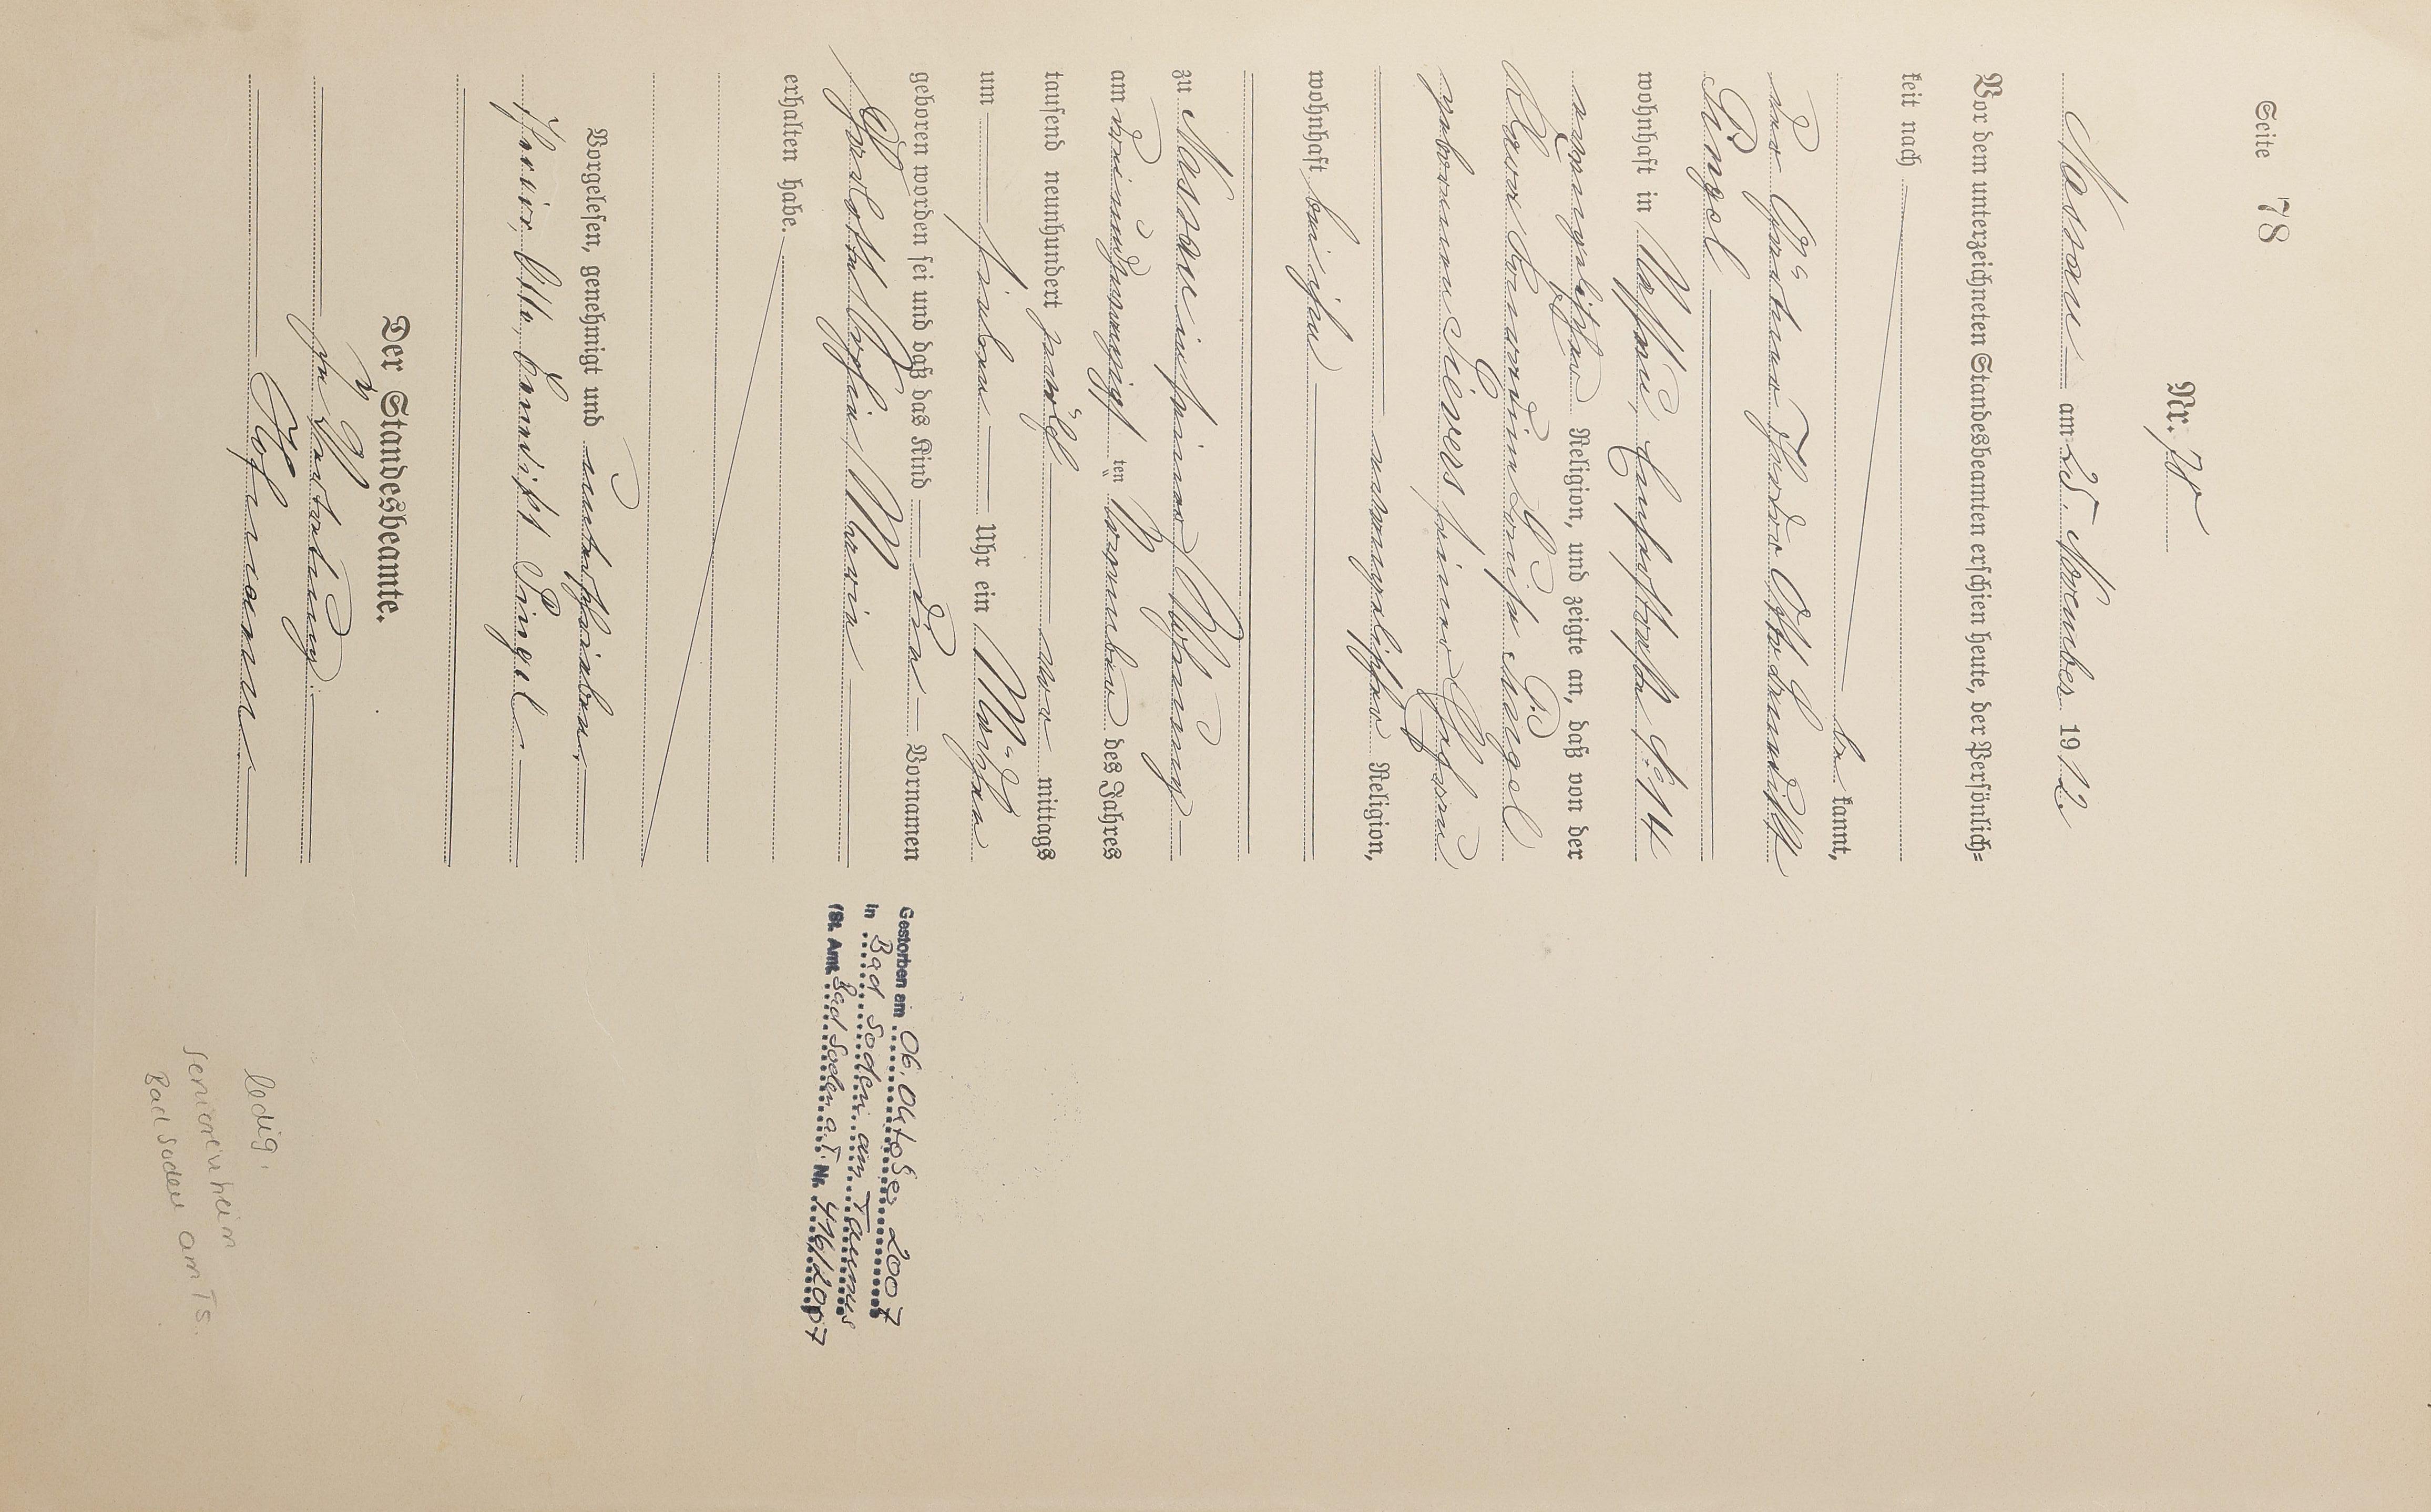 Seite 78
Nr. 78
Nassau am 25. November 1912
Vor dem unterzeichneten Standesbeamten erschien heute, der Persönlich=
keit nach
be kannt,
der Gärtner Theodor Otto Benedikt
Pingel
wohnhaft in Nassau, Emserstraße No 14
evangelischer Religion, und zeigte an, daß von der
Klara Bernardine Luise Pingel
geborenen Sievers seiner Ehefrau
evangelischer Religion,
wohnhaft bei ihm
zu Nassau in seiner Wohnung
am dreiundzwanzigsten November des Jahres
tausend neunhundert zwölf vor mittags
um sieben Uhr ein Mädchen
geboren worden sei und daß das Kind die Vornamen
Sofie Maria
erhalten habe.
Vorgelesen, genehmigt und unterschrieben
Theodor, Otto, Benedikt Pingel
Der Standesbeamte.
In Vertretung
Hofmann
Gestorben am 06. Oktober 2007
in Bad Soden am Taunus
(St. Amt Bad Soden a.T. Nr. 416/2007
ledig.
Seniorenheim
Bad Soden am Ts.